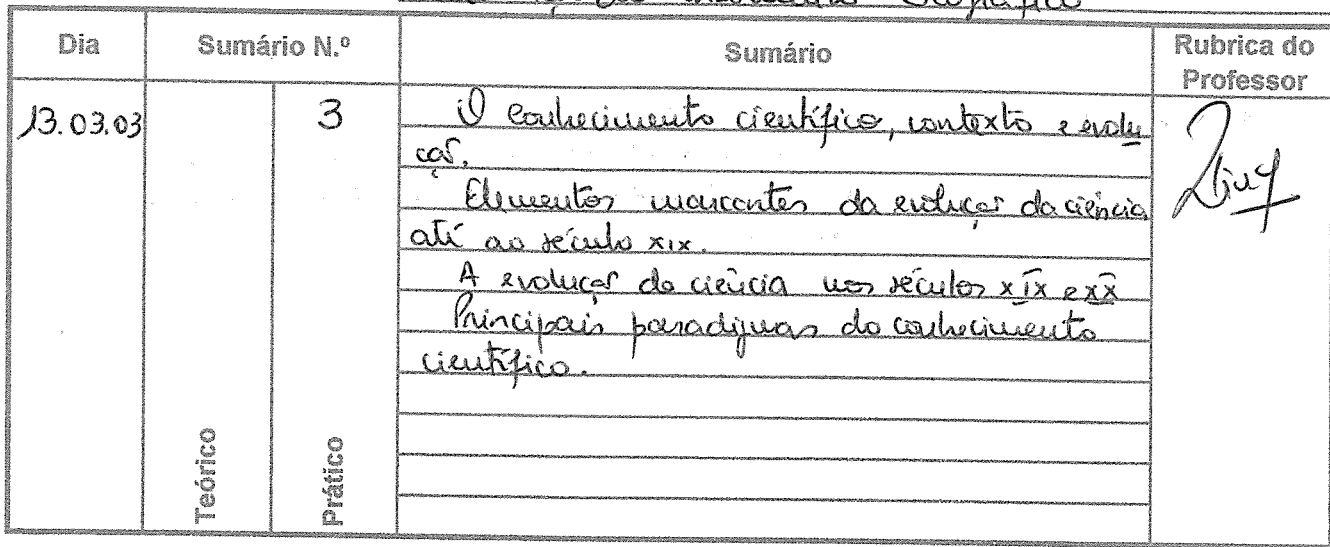 Dia Sumário N.º Sumário Rubrica do Professor
13.03.03 3
O conhecimento científico, contexto e evolu
ção.
Elementos marcantes da evolução da ciência
até ao século XIX.
A evolução da ciência nos séculos XIX e XX
Principais paradigmas do conhecimento
científico.
Teórico Prático